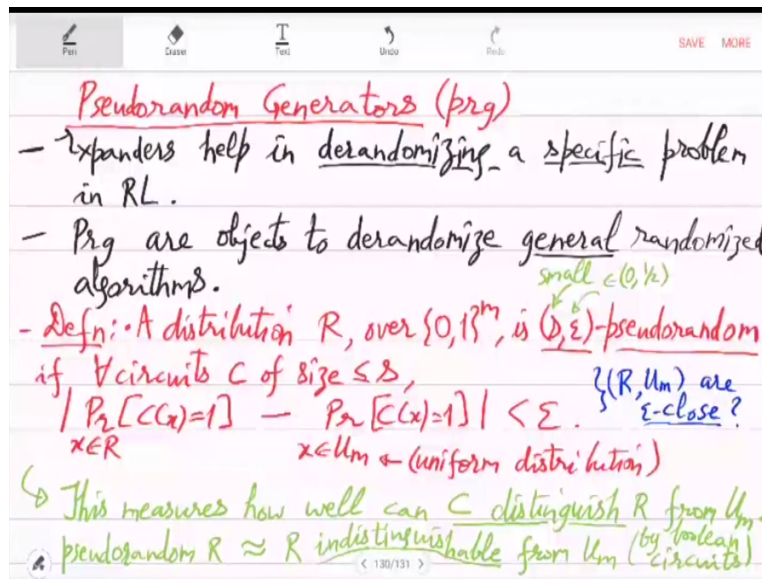 Pen Eraser Text Undo Redo SAVE MORE
Pseudorandom Generators (prg)
- Expanders help in derandomizing a specific problem
in RL.
- Prg are objects to derandomize general randomized
algorithms.
small ∈(0,½)
- Defn: • A distribution R, over {0,1}^m, is (s,ε)-pseudorandom
if ∀circuits C of size ≤s,
|Pr[C(x)=1] - Pr[C(x)=1]| < ε.
x∈R x∈Um ← (uniform distribution)
}(R,Um) are
ε-close?
↳ This measures how well can C distinguish R from Um.
pseudorandom R ≈ R indistinguishable from Um (by boolean
circuits)
< 130/131 >